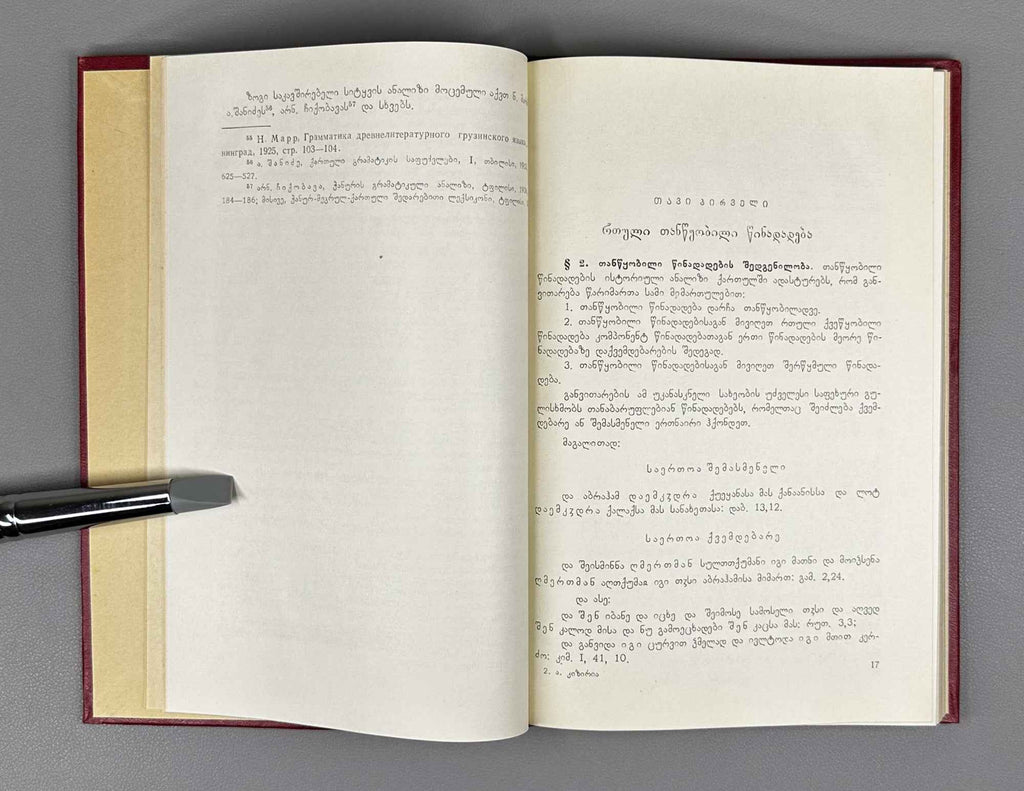 ზოგი საკავშირებელი სიტყვის ანალიზი მოცემული აქვთ ნ.
ა. შანიძეს⁵⁶, არნ. ჩიქობავას⁵⁷ და სხვებს.
⁵⁵ Н. Марр, Грамматика древнелитературного грузинского языка,
нинград, 1925, стр. 103—104.
⁵⁶ ა. შანიძე, ქართული გრამატიკის საფუძვლები, I, თბილისი,
625—527.
⁵⁷ არნ. ჩიქობავა, ჭანურის გრამატიკული ანალიზი, ტფილისი,
184—186; მისივე, ჭანურ-მეგრულ-ქართული შედარებითი ლექსიკონი, ტფილისი,
თავი პირველი
რთული თანწყობილი წინადადება
§ 2. თანწყობილი წინადადების შედგენილობა. თანწყობილი
წინადადების ისტორიული ანალიზი ქართულში ადასტურებს, რომ გან-
ვითარება წარიმართა სამი მიმართულებით:
1. თანწყობილი წინადადება დარჩა თანწყობილადვე.
2. თანწყობილი წინადადებისაგან მივიღეთ რთული ქვეწყობილი
წინადადება კომპონენტ წინადადებათაგან ერთი წინადადების მეორე წი-
ნადადებაზე დაქვემდებარების შედეგად.
3. თანწყობილი წინადადებისაგან მივიღეთ შერწყმული წინადა-
დება.
განვითარების ამ უკანასკნელი სახეობის უძველესი საფეხური გუ-
ლისხმობს თანაბარუფლებიან წინადადებებს, რომელთაც შეიძლება ქვემ-
დებარე ან შემასმენელი ერთნაირი ჰქონდეთ.
მაგალითად:
საერთოა შემასმენელი
და აბრაჰამ დაემკჳდრა ქუეყანასა მას ქანაანისსა და ლოტ
დაემკჳდრა ქალაქსა მას სანახეთასა: დაბ. 13,12.
საერთოა ქვემდებარე
და შეისმინნა ღმერთმან სულთთქუმანი იგი მათნი და მოიჴსენა
ღმერთმან აღთქუმაჲ იგი თჳსი აბრაჰამისა მიმართ: გამ. 2,24.
და ასე:
და შენ იბანე და იცხე და შეიმოსე სამოსელი თჳსი და აღვედ
შენ კალოდ მისა და ნუ გამოეცხადები შენ კაცსა მას: რუთ. 3,3;
და განვიდა იგი ცურვით ჴმელად და ივლტოდა იგი მთით კერ-
ძო: კიმ. I, 41, 10.
2. ა. კიზირია
17